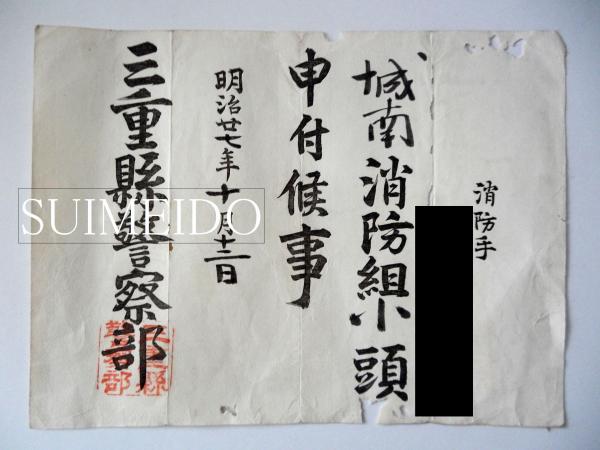 消防手
城南消防組小頭
申付候事
明治廿七年十月十二日
三重縣警察部
三重縣警察部
SUIMEIDO